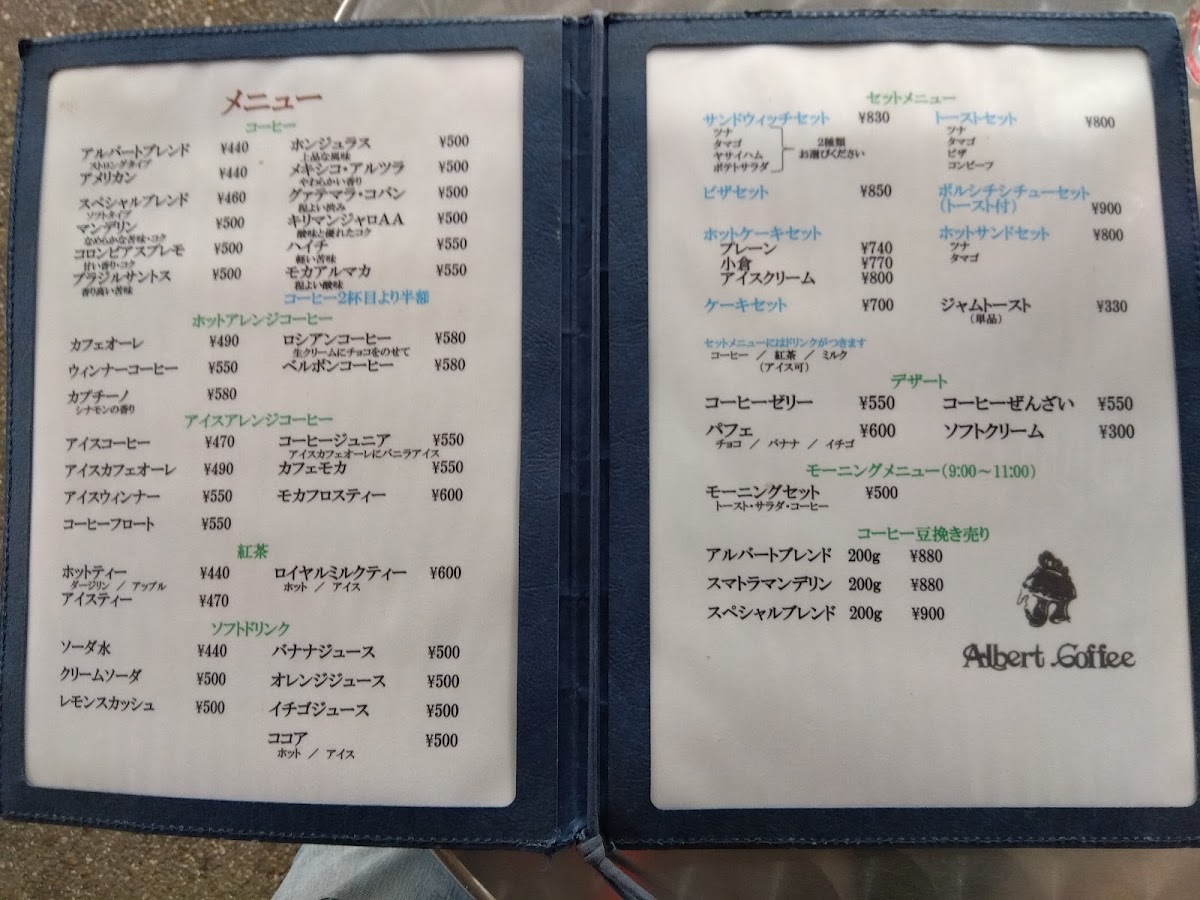 メニュー
コーヒー
アルバートブレンド ¥440
ストロングタイプ
アメリカン ¥440
スペシャルブレンド ¥460
ソフトタイプ
マンデリン ¥500
なめらかな苦味・コク
コロンビアスプレモ ¥500
甘い香り・コク
ブラジルサントス ¥500
香り高い苦味
ホンジュラス ¥500
上品な風味
メキシコ・アルツラ ¥500
やわらかい香り
グァテマラ・コバン ¥500
程よい渋み
キリマンジャロAA ¥500
酸味と優れたコク
ハイチ ¥550
軽い苦味
モカアルマカ ¥550
程よい酸味
コーヒー2杯目より半額
ホットアレンジコーヒー
カフェオーレ ¥490
ウィンナーコーヒー ¥550
カプチーノ ¥580
シナモンの香り
ロシアンコーヒー ¥580
生クリームにチョコをのせて
ベルボンコーヒー ¥580
アイスアレンジコーヒー
アイスコーヒー ¥470
アイスカフェオーレ ¥490
アイスウィンナー ¥550
コーヒーフロート ¥550
コーヒージュニア ¥550
アイスカフェオーレにバニラアイス
カフェモカ ¥550
モカフロスティー ¥600
紅茶
ホットティー ¥440
ダージリン / アップル
アイスティー ¥470
ロイヤルミルクティー ¥600
ホット / アイス
ソフトドリンク
ソーダ水 ¥440
クリームソーダ ¥500
レモンスカッシュ ¥500
バナナジュース ¥500
オレンジジュース ¥500
イチゴジュース ¥500
ココア ¥500
ホット / アイス
セットメニュー
サンドウィッチセット ¥830
ツナ
タマゴ
ヤサイハム
ポテトサラダ
2種類
お選びください
トーストセット ¥800
ツナ
タマゴ
ピザ
コンビーフ
ピザセット ¥850
ボルシチシチューセット
(トースト付) ¥900
ホットケーキセット
プレーン ¥740
小倉 ¥770
アイスクリーム ¥800
ホットサンドセット ¥800
ツナ
タマゴ
ケーキセット ¥700
ジャムトースト ¥330
(単品)
セットメニューにはドリンクがつきます
コーヒー / 紅茶 / ミルク
(アイス可)
デザート
コーヒーゼリー ¥550
コーヒーぜんざい ¥550
パフェ ¥600
チョコ / バナナ / イチゴ
ソフトクリーム ¥300
モーニングメニュー(9:00～11:00)
モーニングセット ¥500
トースト・サラダ・コーヒー
コーヒー豆挽き売り
アルバートブレンド 200g ¥880
スマトラマンデリン 200g ¥880
スペシャルブレンド 200g ¥900
Albert Coffee